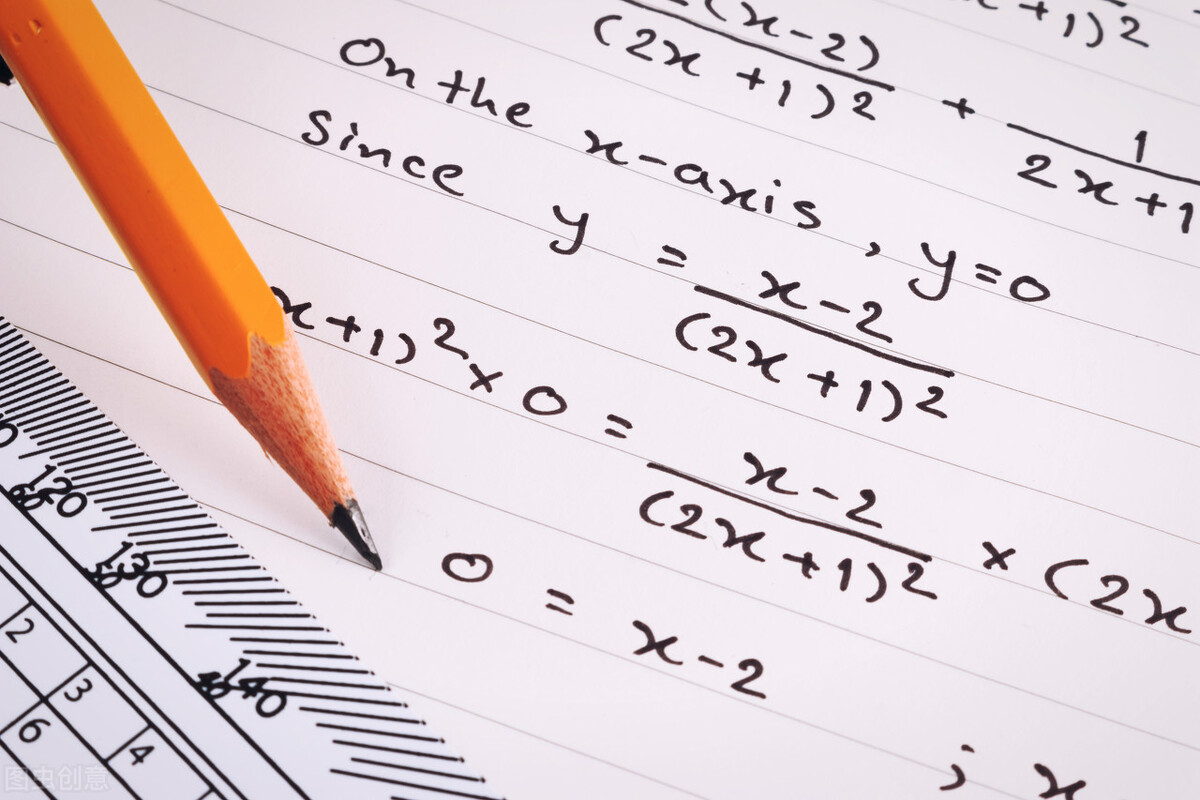 (x-2)
(2x+1)² + 1
2x+1
x+1)²
On the x-axis, y=0
Since y = x-2
(2x+1)²
x+1)² × 0 = x-2
(2x+1)² × (2x
0 = x-2
; x
120
130
140
2
3
4
6
图虫创意